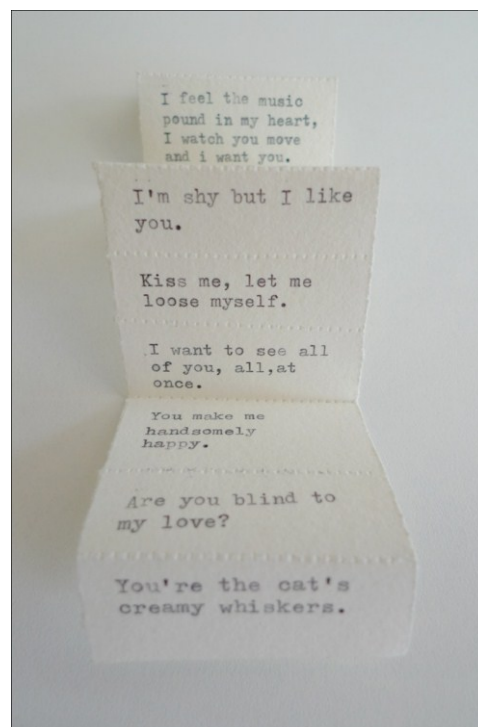 I feel the music
pound in my heart,
I watch you move
and i want you.
I'm shy but I like
you.
Kiss me, let me
loose myself.
I want to see all
of you, all,at
once.
You make me
handsomely
happy.
Are you blind to
my love?
You're the cat's
creamy whiskers.